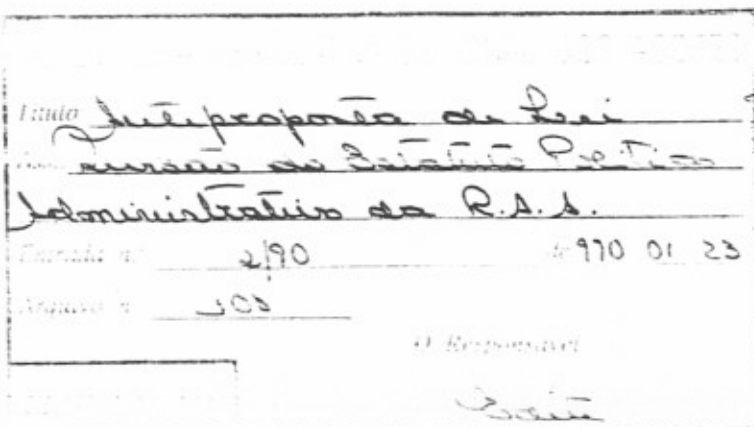 Título Anteproposta de Lei
Revisão do Estatuto Político
Administrativo da R.A.A.
Entrada n.º 2/90 de 990 01 23
Arquivo n.º 105
O Responsável